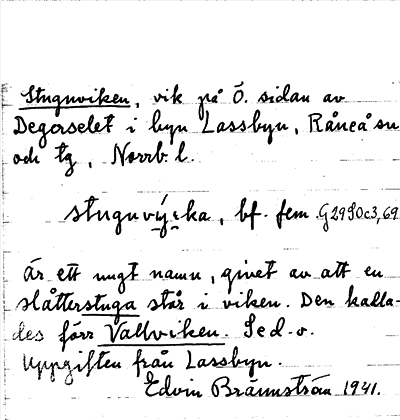 Stuguviken, vik på Ö. sidan av
Degerselet i byn Lassbyn, Råneå sn
och tg, Norrb. l.
stuguvýcka, bf. fem. G2990c3,69
Är ett nugt namn, givet av att en
slåtterstuga står i viken. Den kalla-
des förr Vallviken. Se d. o.
Uppgiften från Lassbyn.
Edvin Brännström 1941.